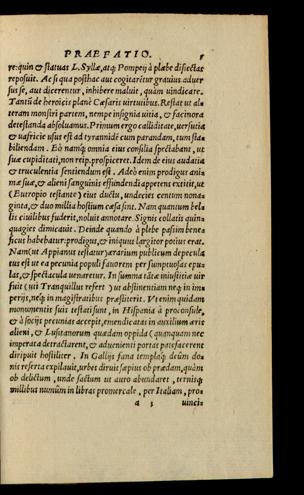 PRAEFATIO. 5
re: quin & statuas L. Syllæ, atq; Pompeij à plæbe disiectas
reposuit. Ac si qua posthac aut cogitarẽtur grauius aduer
sus se, aut dicerentur, inhibere maluit, quàm uindicare.
Tantũ de heroicis planè Cæsaris uirtutibus. Restat ut al-
teram monstri partem, nempe insignia uitia, & facinora
detestanda absoluamus. Primum ergo calliditate, uersutia
& uafricie usus est ad tyrannidẽ cum parandam, tum sta-
biliendam. Eò namq; omnia eius consilia spectabant, ut
suæ cupiditati, non reip. prospiceret. Idem de eius audatia
& truculentia sentiendum est. Adeò enim prodigus ani-
mæ suæ, & alieni sanguinis effundendi appetens extitit, ut
( Eutropio testante ) eius ductu, undecies centum nona-
ginta, & duo millia hostium cæsa sint. Nam quantum bel-
lis ciuilibus fuderit, noluit annotare. Signis collatis quin-
quagies dimicauit. Deinde quando à plebe passim bene-
ficus habebatur: prodigus, & iniquus largitor potius erat.
Nam ( ut Appianus testatur ) ærarium publicum depecula
tus est ut ea pecunia populi fauorem per sumptuosas epu-
las, & spectacula uenaretur. In summa tãtæ iniustitiæ uir
fuit ( uti Tranquillus refert ) ut abstinentiam neq; in im-
perijs, neq; in magistratibus præstiterit. Vt enim quidam
monumentis suis testati sunt, in Hispania à proconsule,
& à socijs pecunias accepit, emendicatas in auxilium æris
alieni, & Lusitanorum quædam oppida ( quanquam nec
imperata detractarent, & aduenienti portas patefacerent
diripuit hostiliter. In Gallijs fana templaq; deûm do-
nis referta expilauit, urbes diruit sæpius ob prædam, quàm
ob delictum, unde factum ut auro abundaret, ternisq;
millibus numûm in libras promercale, per Italiam, pro-
a 3 uinci-